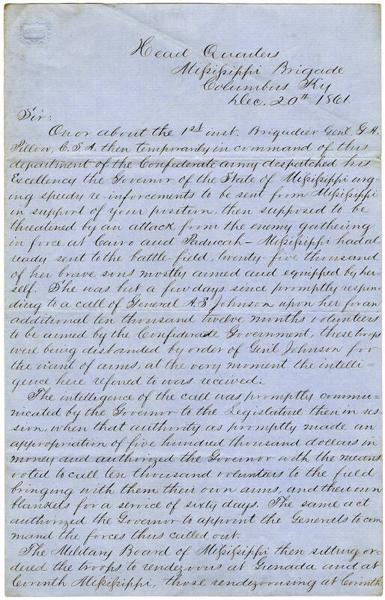 Head Quarters
Mississippi Brigade
Columbus Ky
Dec. 20th 1861
Sir:
On or about the 1st inst. Brigadier Genl. G. A.
Pillow, C.S.A. then temporarily in command of this
department of the Confederate army despatched his
Excellency the Governor of the State of Mississippi urg-
ing speedy re-inforcements to be sent from Mississippi
in support of your position, then supposed to be
threatened by an attack from the enemy gathering
in force at Cairo and Paducah — Mississippi had al-
ready sent to the battle field, twenty five thousand
of her brave sons mostly armed and equipped by her-
self. She was but a few days since promptly respon-
ding to a call of General A.S. Johnson upon her for an
additional ten thousand twelve months volunteers
to be armed by the Confederate Government, these troops
were being disbanded by order of Genl Johnson for
the want of arms, at the very moment the intelli-
gence here refered to was received.
The intelligence of the call was promptly commu-
nicated by the Governor to the Legislature then in ses-
sion, when that authority as promptly made an
appropriation of five hundred thousand dollars in
money and authorized the Governor with the means
voted to call ten thousand volunteers to the field
bringing with them their own arms, and their own
blankets for a service of sixty days. The same act
authorized the Governor to appoint the Generals to com-
mand the forces thus called out.
The Military Board of Mississippi then sitting or-
dered the troops to rendezvous at Grenada and at
Corinth Mississippi, those rendezvousing at Corinth